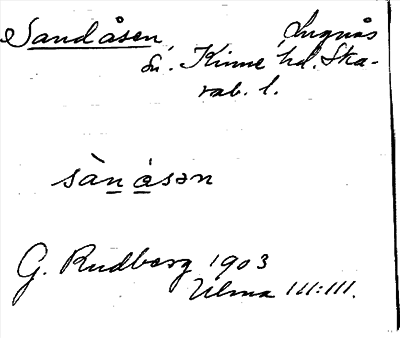 Sandåsen, Lugnås
sn. Kinne hd. Ska-
rab. l.
sàn åsən
G. Rudberg 1903
Ulma 111:111.